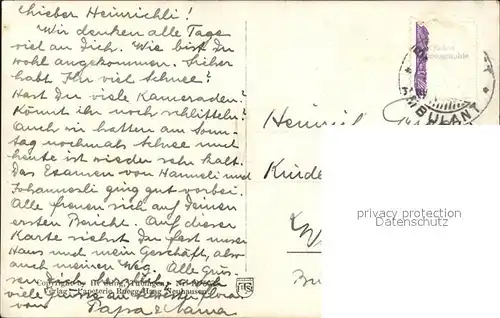 Lieber Heinrichli!
Wir denken alle Tage
viel an Dich. Wie bist Du
wohl angekommen. Sicher
habt Ihr viel Schnee?
Hast Du viele Kameraden?
Könnt ihr noch schlitteln?
Auch wir hatten am Sonn-
tag nochmals Schnee und
heute ist wieder sehr kalt.
Das Examen von Hanneli und
Johannesli ging gut vorbei.
Alle freuen sich auf Deinen
ersten Bericht. Auf dieser
Karte siehst Du fast unser
Haus und mein Geschäft, also
auch meinen Weg. Alle Grüs-
sen Dich herzlich
viele Grüsse an Schwester Flora.
von Papa & Mama
Copyright by
Verlag Papeterie Neuhausen
AMBULANT
Heinrich
Kinder
privacy protection
Datenschutz